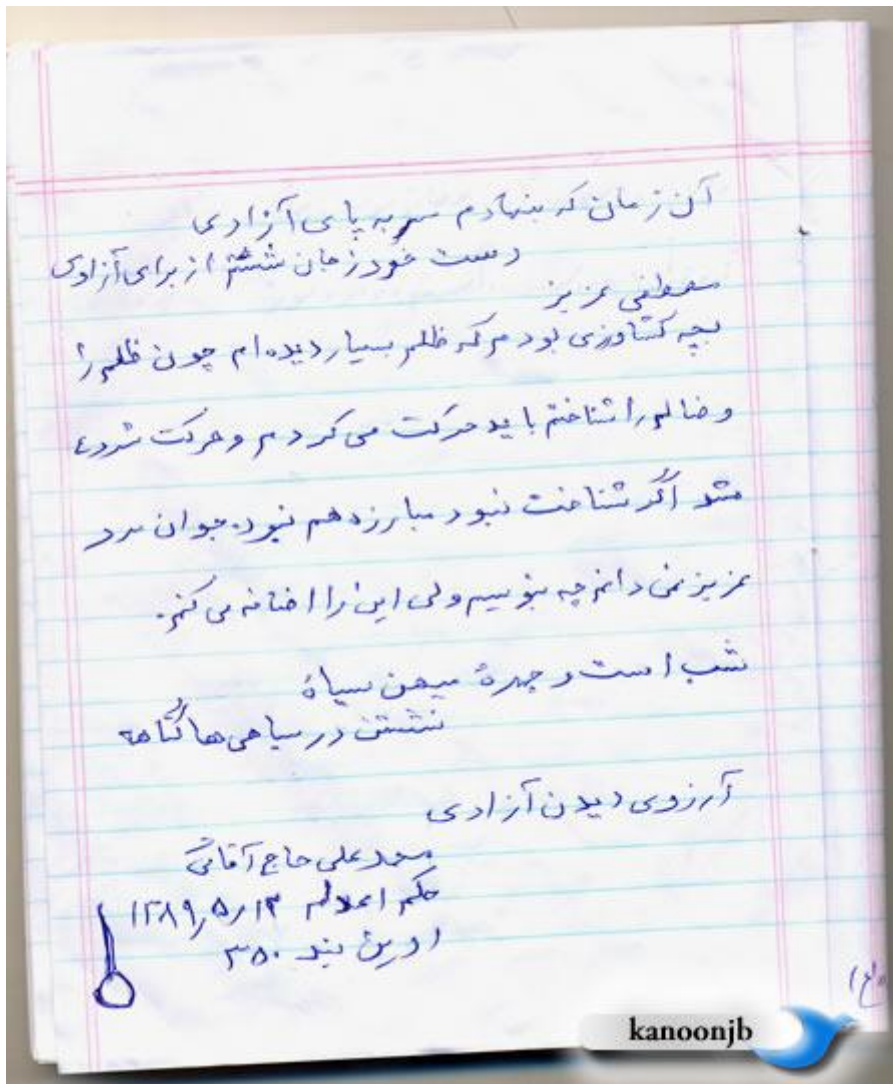 آن زمان که بنهادم سر به پای آزادی
دست خود ز جان شستم از برای آزادی
مصطفی عزیز
بچه کشاورزی بودم که ظلم بسیار دیده ام چون ظلم را
و ضالم را شناختم باید حرکت می کردم و حرکت شروع
شد اگر شناخت نبود مبارزه هم نبود. جوان مرد
عزیز نمی دانم چه بنویسم ولی این را اضافه می کنم.
شب است و چهرهٔ میهن سیاهٔ
نشستن در سیاهی ها گناهه
آرزوی دیدن آزادی
محمد علی حاج آقائی
حکم اعدام ۱۳۸۹٫۵/۱۳
اوین بند ۳۵۰
kanoonjb